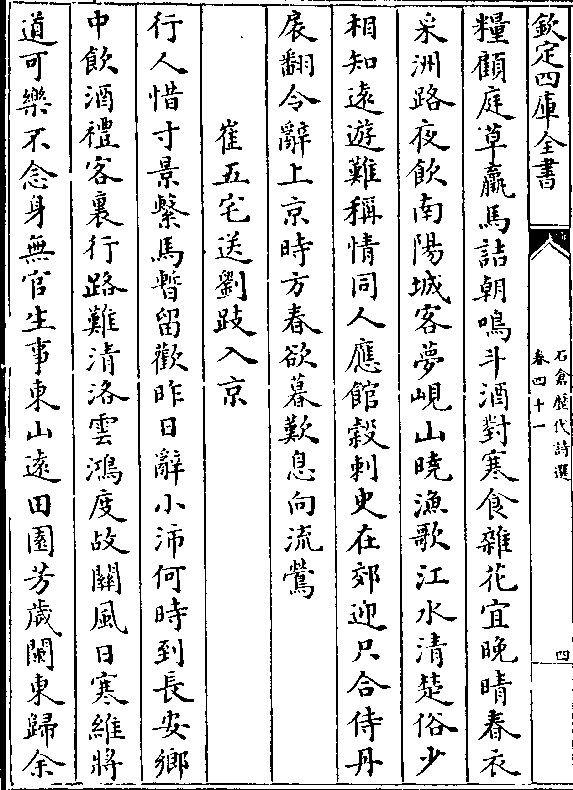 欽定四庫全書
石倉歷代詩選
卷四十一
四
糧顧庭草羸馬詰朝鳴斗酒對寒食雜花宜晚晴春衣
采洲路夜飲南陽城客夢峴山曉漁歌江水清楚俗少
相知遠遊難稱情同人應館穀刺史在郊迎只合侍丹
扆翻令辭上京時方春欲暮歎息向流鶯
崔五宅送劉跂入京
行人惜寸景繫馬暫留歡昨日辭小沛何時到長安鄉
中飲酒禮客裏行路難清洛雲鴻度故關風日寒維將
道可樂不念身無官生事東山遠田園芳歲闌東歸余